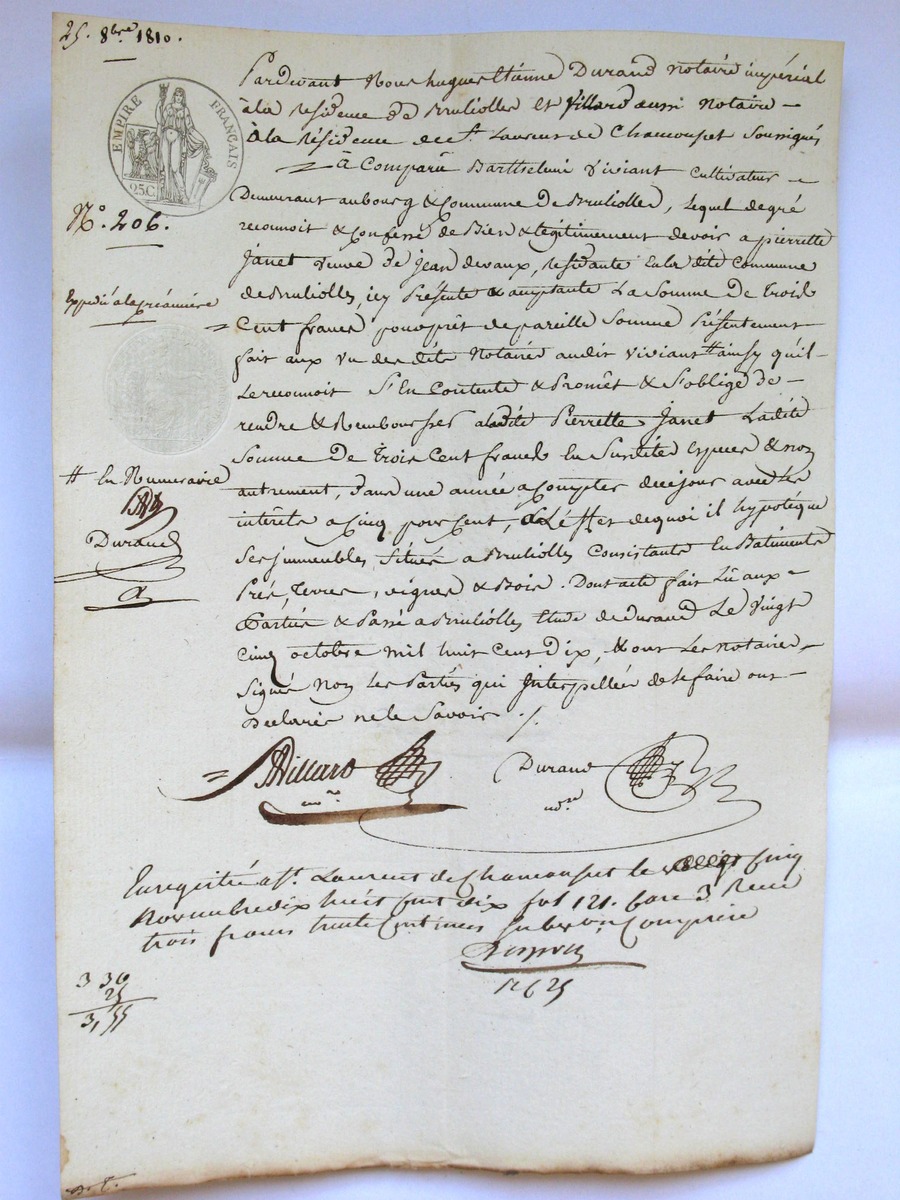 25. 8bre 1810.
EMPIRE FRANÇAIS
25C
N° 206.
Expédié à la créancière
# En Numeraire
Durand
Pardevant Nous hugues Etienne Durand notaire impérial
à la residence de Brulliolles et Villard aussi Notaire
à la Résidence de St. Laurent de Chamousset Soussignés
à Comparu Barthelemi Viviant Cultivateur
Demeurant au bourg & Commune De Brulliolles, lequel de gré
reconnoit & Confesse de Bien & légitimement devoir a pierrette
Janet veuve de Jean devaux, residante En la dite Commune
de Brulliolles, icy Présente & acceptante La Somme De trois
Cent francs pour prêt de pareille Somme Présentement
fait aux vu des dits Notaires audit Viviant # ainsy qu'il
Le reconnoit S'En Contente & Promet & S'oblige de
rendre & Rembourser a ladite Pierrette Janet Ladite
Somme De trois Cent francs En Susdites Especes & non
autrement, dans une année a Compter de ce jour avec Les
intérêts a Cinq pour Cent, à L'effet de quoi il hypotéque
Ses immeubles Situés a Brulliolles Consistants En Batiments
Prés, terres, vignes & Bois. Dont acte fait Lû aux
Parties & Passé a Brulliolles Etude de Durand Le Vingt
Cinq octobre mil huit Cent Dix, & ont Les notaires
Signé Non Les Parties qui Interpellées de le faire ont
Declarés ne le Savoir ./.
Villard
Durand
nore
Enregistré à St. Laurent de Chamousset le cinq
Novembre dix huit cent dix fol 121. Case 3 Reçu
trois francs trente Centimes Subvon Comprise
3 30
25
3,55